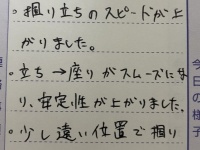 ・掴り立ちのスピードが上
がりました。
・立ち→座りがスムーズにな
り、安定性が上がりました。
・少し遠い位置で掴り
今日の様子